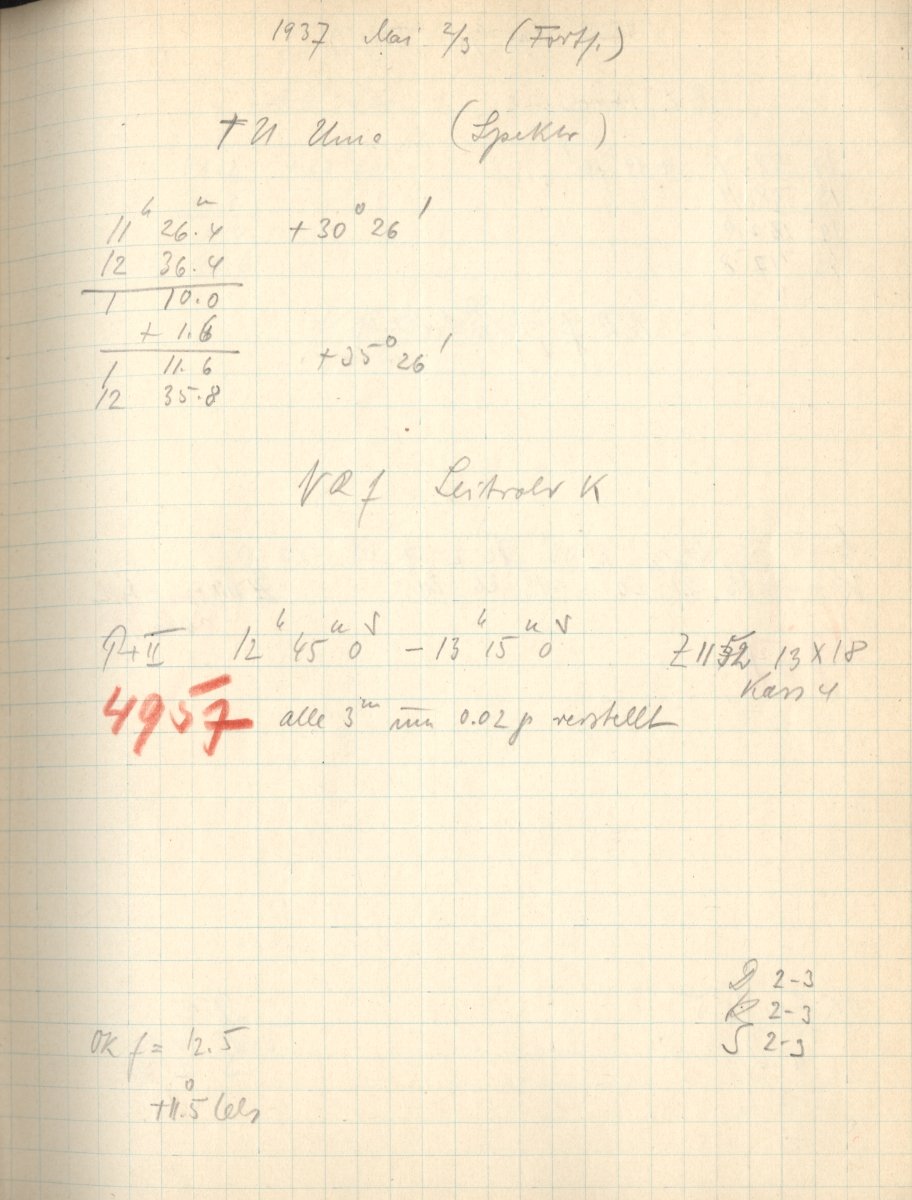 1937 Mai 2/3 (Forts.)
TU Uma (Spektr)
11h 26m.4 +30° 26'
12 36.4
1 10.0
+ 1.6
1 11.6 +35° 26'
12 35.8
f Leitrohr K
P+II 12h 45m 0s – 13h 15m 0s Z1152 13 X 18
Kass 4
4957 alle 3m um 0.02 p verstellt
D 2-3
R 2-3
S 2-3
OK f = 12.5
+11°.5 Cels